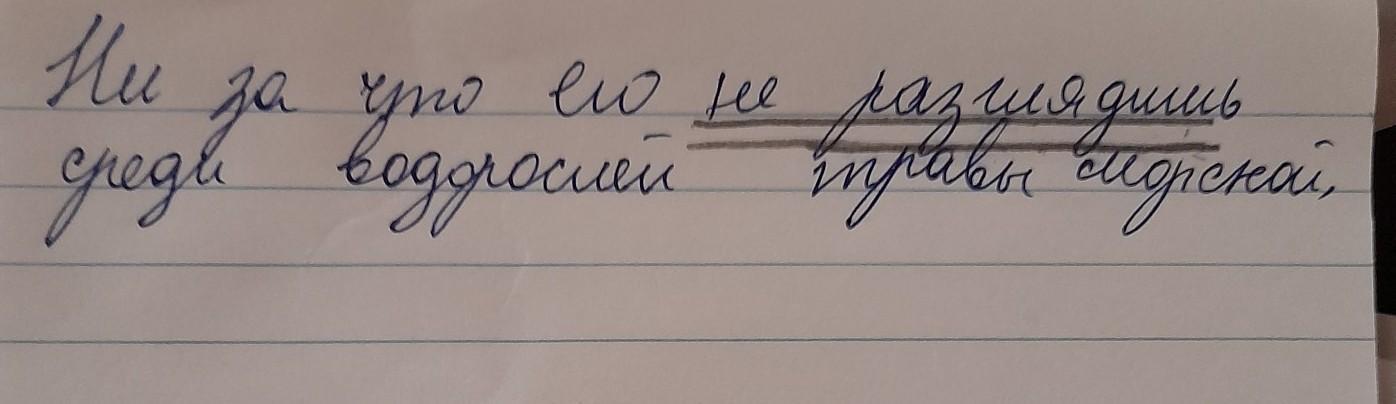 Ни за что его не разглядишь
среди водорослей травы морской,